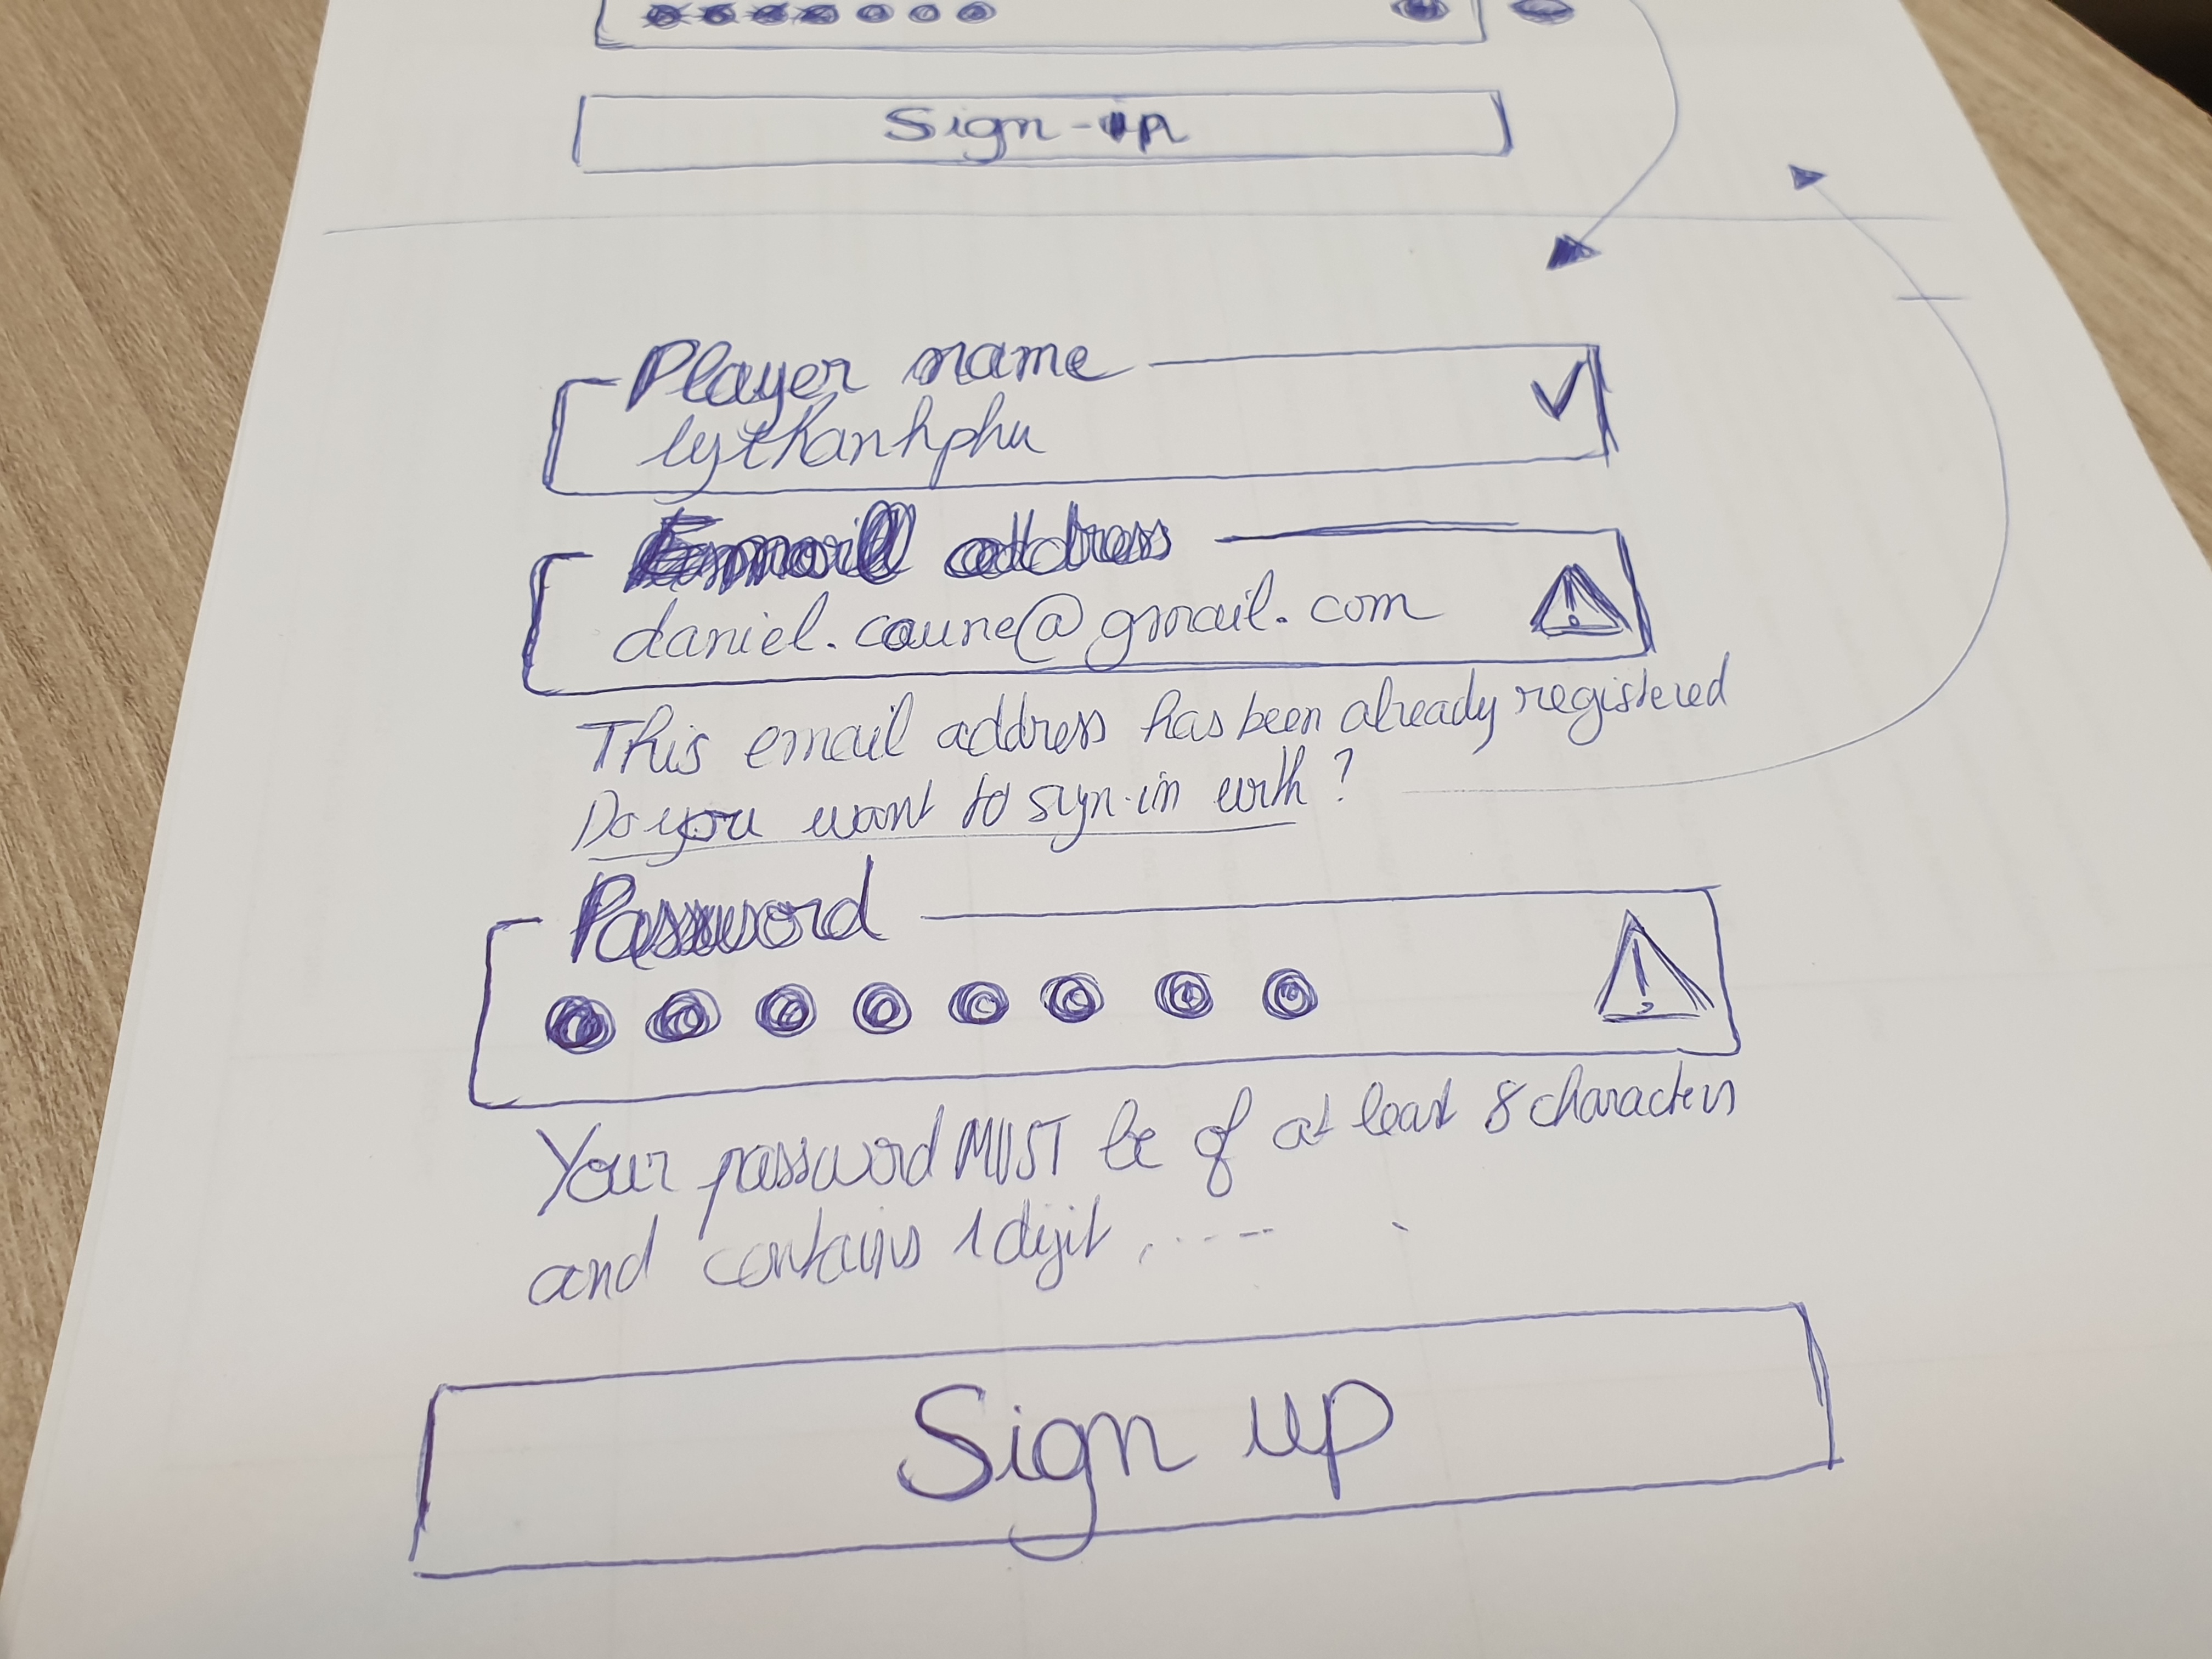 Sign-in
Player name
lythanhphu
Email address
daniel.caune@gmail.com
This email address has been already registered
Do you want to sign-in with?
Password
Your password MUST be of at least 8 characters
and contains 1 digit, ....
Sign up